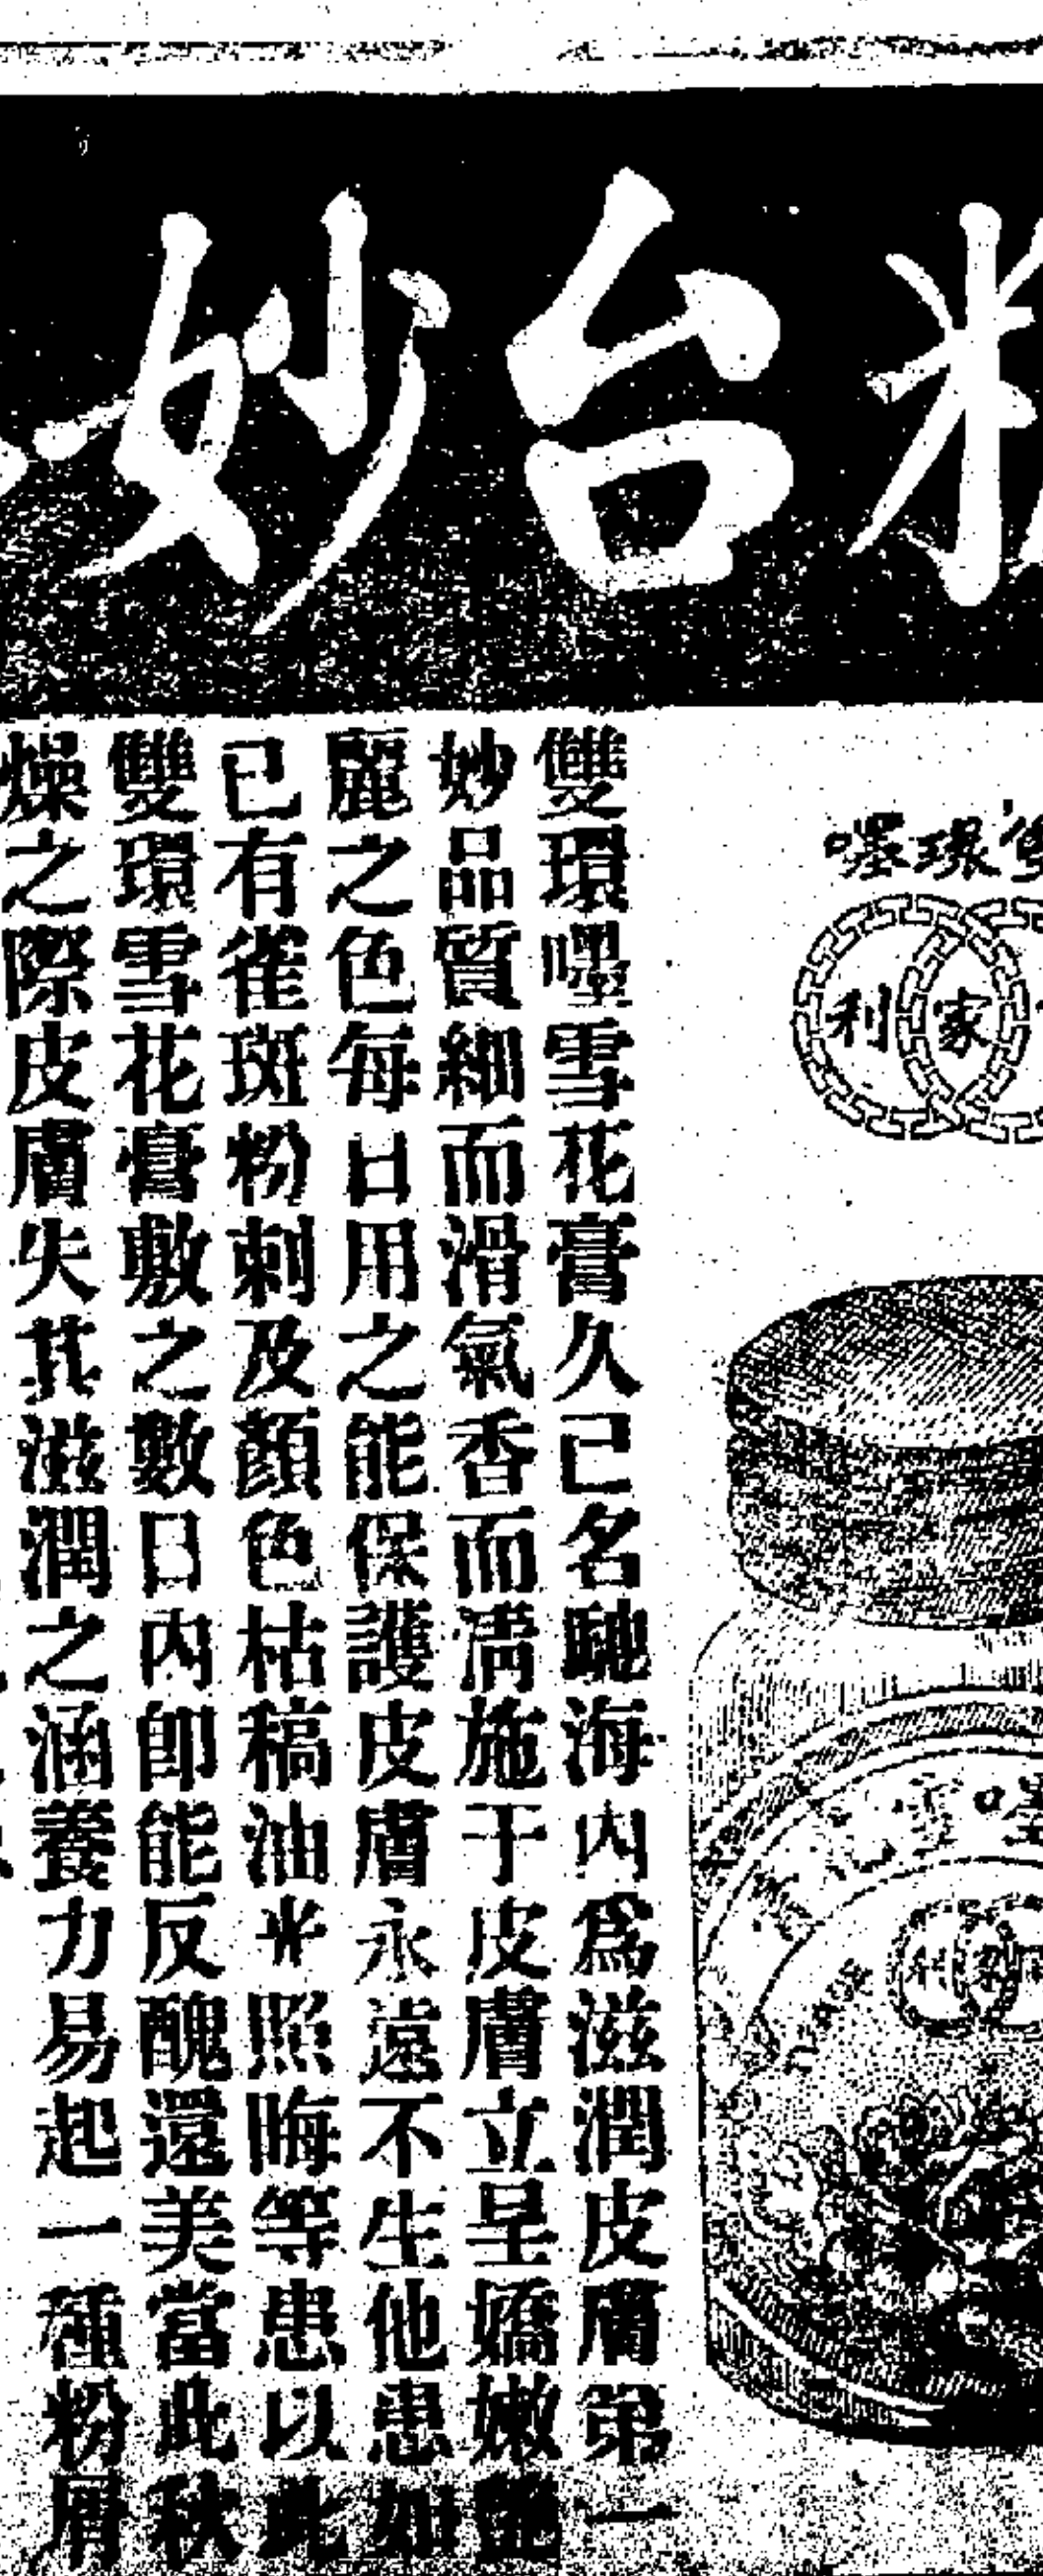 台妙
環嘜
家利
雙環嘜雪花膏久已名馳海內爲滋潤皮膚第一
妙品質細而滑氣香而清施于皮膚立呈嬌嫩艷
麗之色每日用之能保護皮膚永遠不生他患如
已有雀斑粉刺及顏色枯稿油光照晦等患以此
雙環雪花膏敷之數日內卽能反醜還美當此秋
燥之際皮膚失其滋潤之涵養力易起一種粉屑